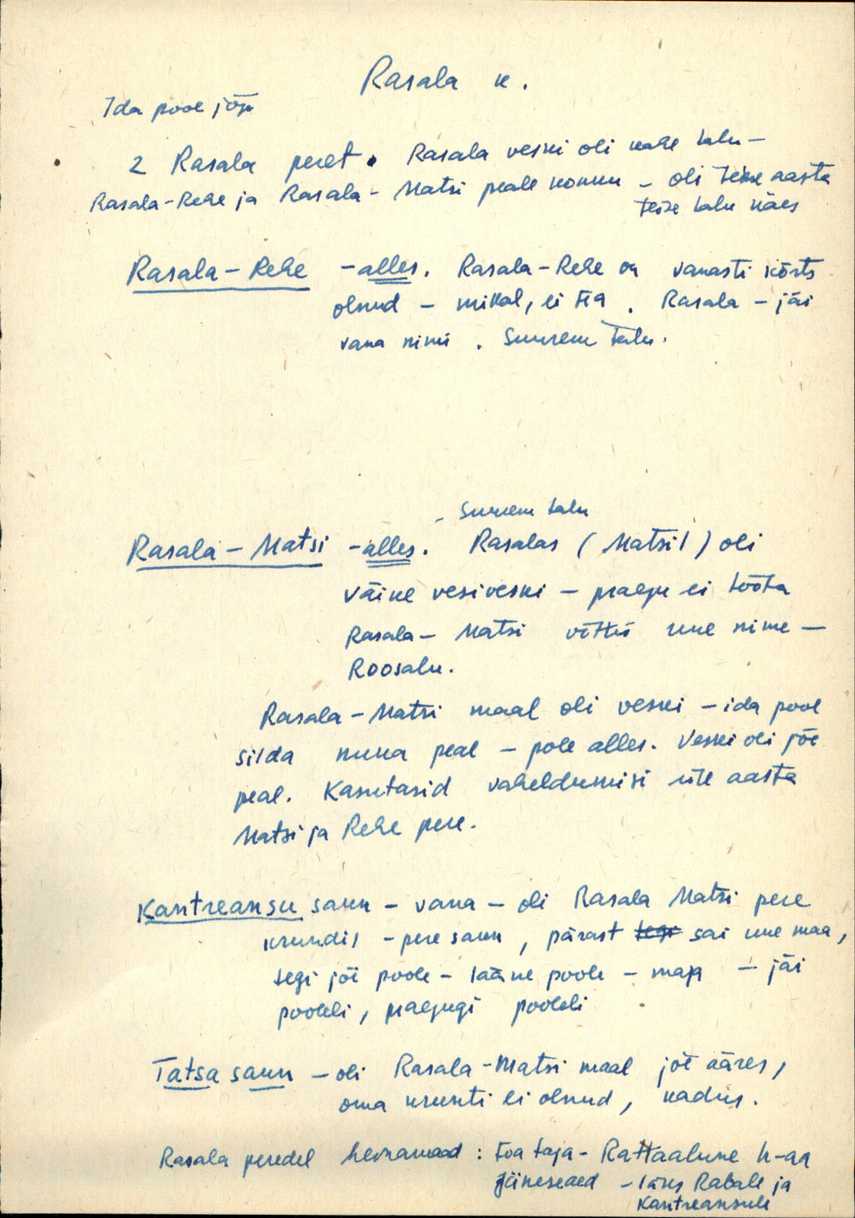 Rasala k.
Ida pool jõge
2 Rasala peret. Rasala veski oli kahe talu –
Rasala-Rehe ja Rasala-Matsi peale kokku – oli teise aasta
teise talu käes
Rasala-Rehe – alles. Rasala-Rehe on vanasti kõrts
olnud – millal, ei tea. Rasala – jäi
vana nimi. Suurem talu.
Suurem talu
Rasala-Matsi – alles. Rasalas (Matsil) oli
väike vesiveski – praegu ei tööta
Rasala-Matsi võttis uue nime –
Roosalu.
Rasala-Matsi maal oli veski – ida pool
silda nuka peal – pole alles. Veski oli jõe
peal. Kasutasid vaheldumisi üle aasta
Matsi ja Rehe pere.
Kantreansu saun – vana – oli Rasala Matsi pere
krundil – pere saun, pärast sai uue maa,
tegi jõe poole – lääne poole – maja – jäi
pooleli, praegugi pooleli
Tatsa saun – oli Rasala-Matsi maal jõe ääres,
oma krunti ei olnud, kadus.
Rasala peredel heinamaad: Toa taja – Rattaalune h-aa
Jäineseaed – läks Rabale ja
Kantreansule